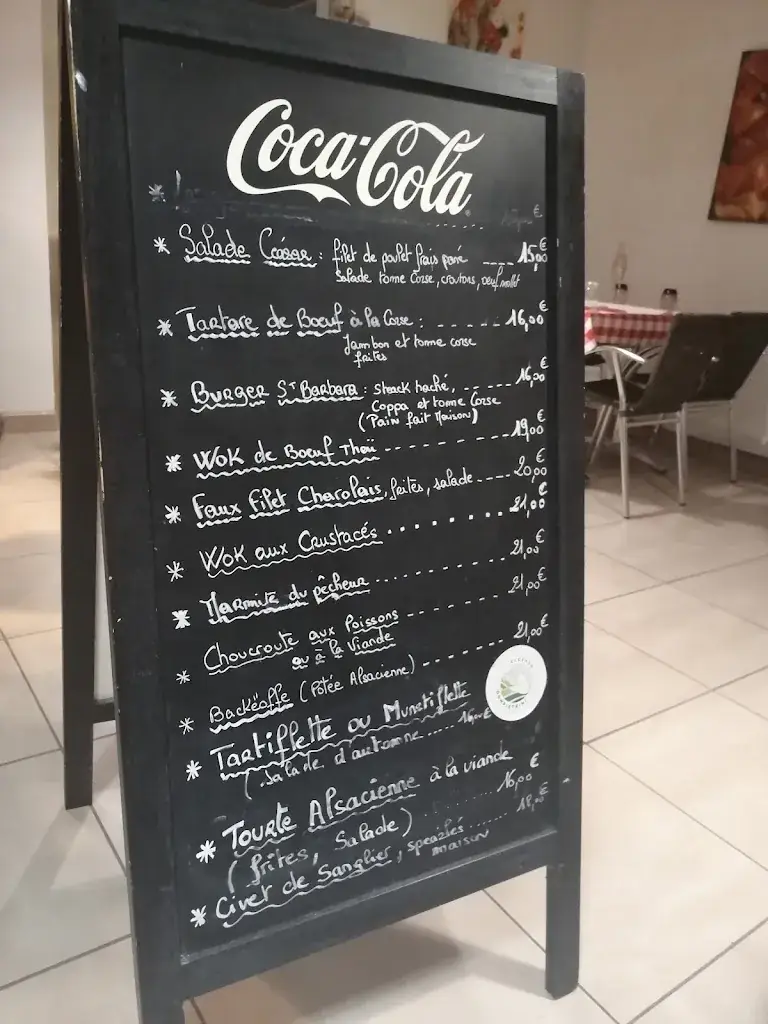 Coca-Cola
* €
* Salade César : filet de poulet frais pané ---- 15,00€
Salade tome Corse, croutons, oeuf mollet
* Tartare de Boeuf à la Corse : ------ 16,00€
Jambon et tomme corse
frites
* Burger St Barbara : steack haché, ----- 16,00€
Coppa et tomme Corse
(Pain fait Maison)
* Wok de Boeuf Thaï ---------- 19,00€
* Faux Filet Charolais, frites, salade ---- 20,00€
* Wok aux Crustacés ........ 21,00€
* Marmite du pêcheur ---------- 21,00€
* Choucroute aux Poissons ------- 21,00€
ou à la Viande
* Backëoffe (Potée Alsacienne) ------- 21,00€
* Tartiflette ou Munstiflette
(Salade d'automne ..... 16,00€
* Tourte Alsacienne à la viande
(frites, Salade) ......... 16,00€
* Civet de Sanglier, speazlés ...... 18,00€
maison